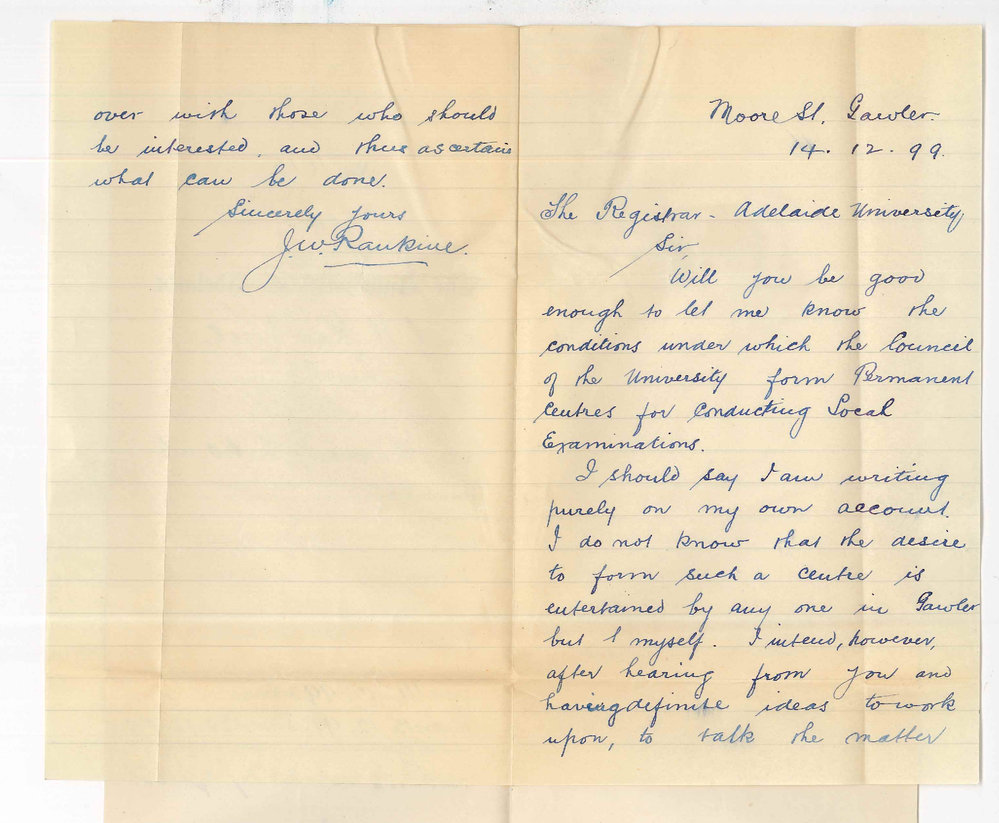 Moore St. Gawler.
14. 12. 99.
The Registrar - Adelaide University,
Sir,
Will you be good
enough to let me know the
conditions under which the Council
of the University form Permanent
Centres for conducting Local
Examinations.
I should say I am writing
purely on my own account.
I do not know that the desire
to form such a centre is
entertained by any one in Gawler
but I myself. I intend, however,
after hearing from you and
having definite ideas to work
upon, to talk the matter
over with those who should
be interested, and thus ascertain
what can be done.
Sincerely yours
J. W. Rankine.